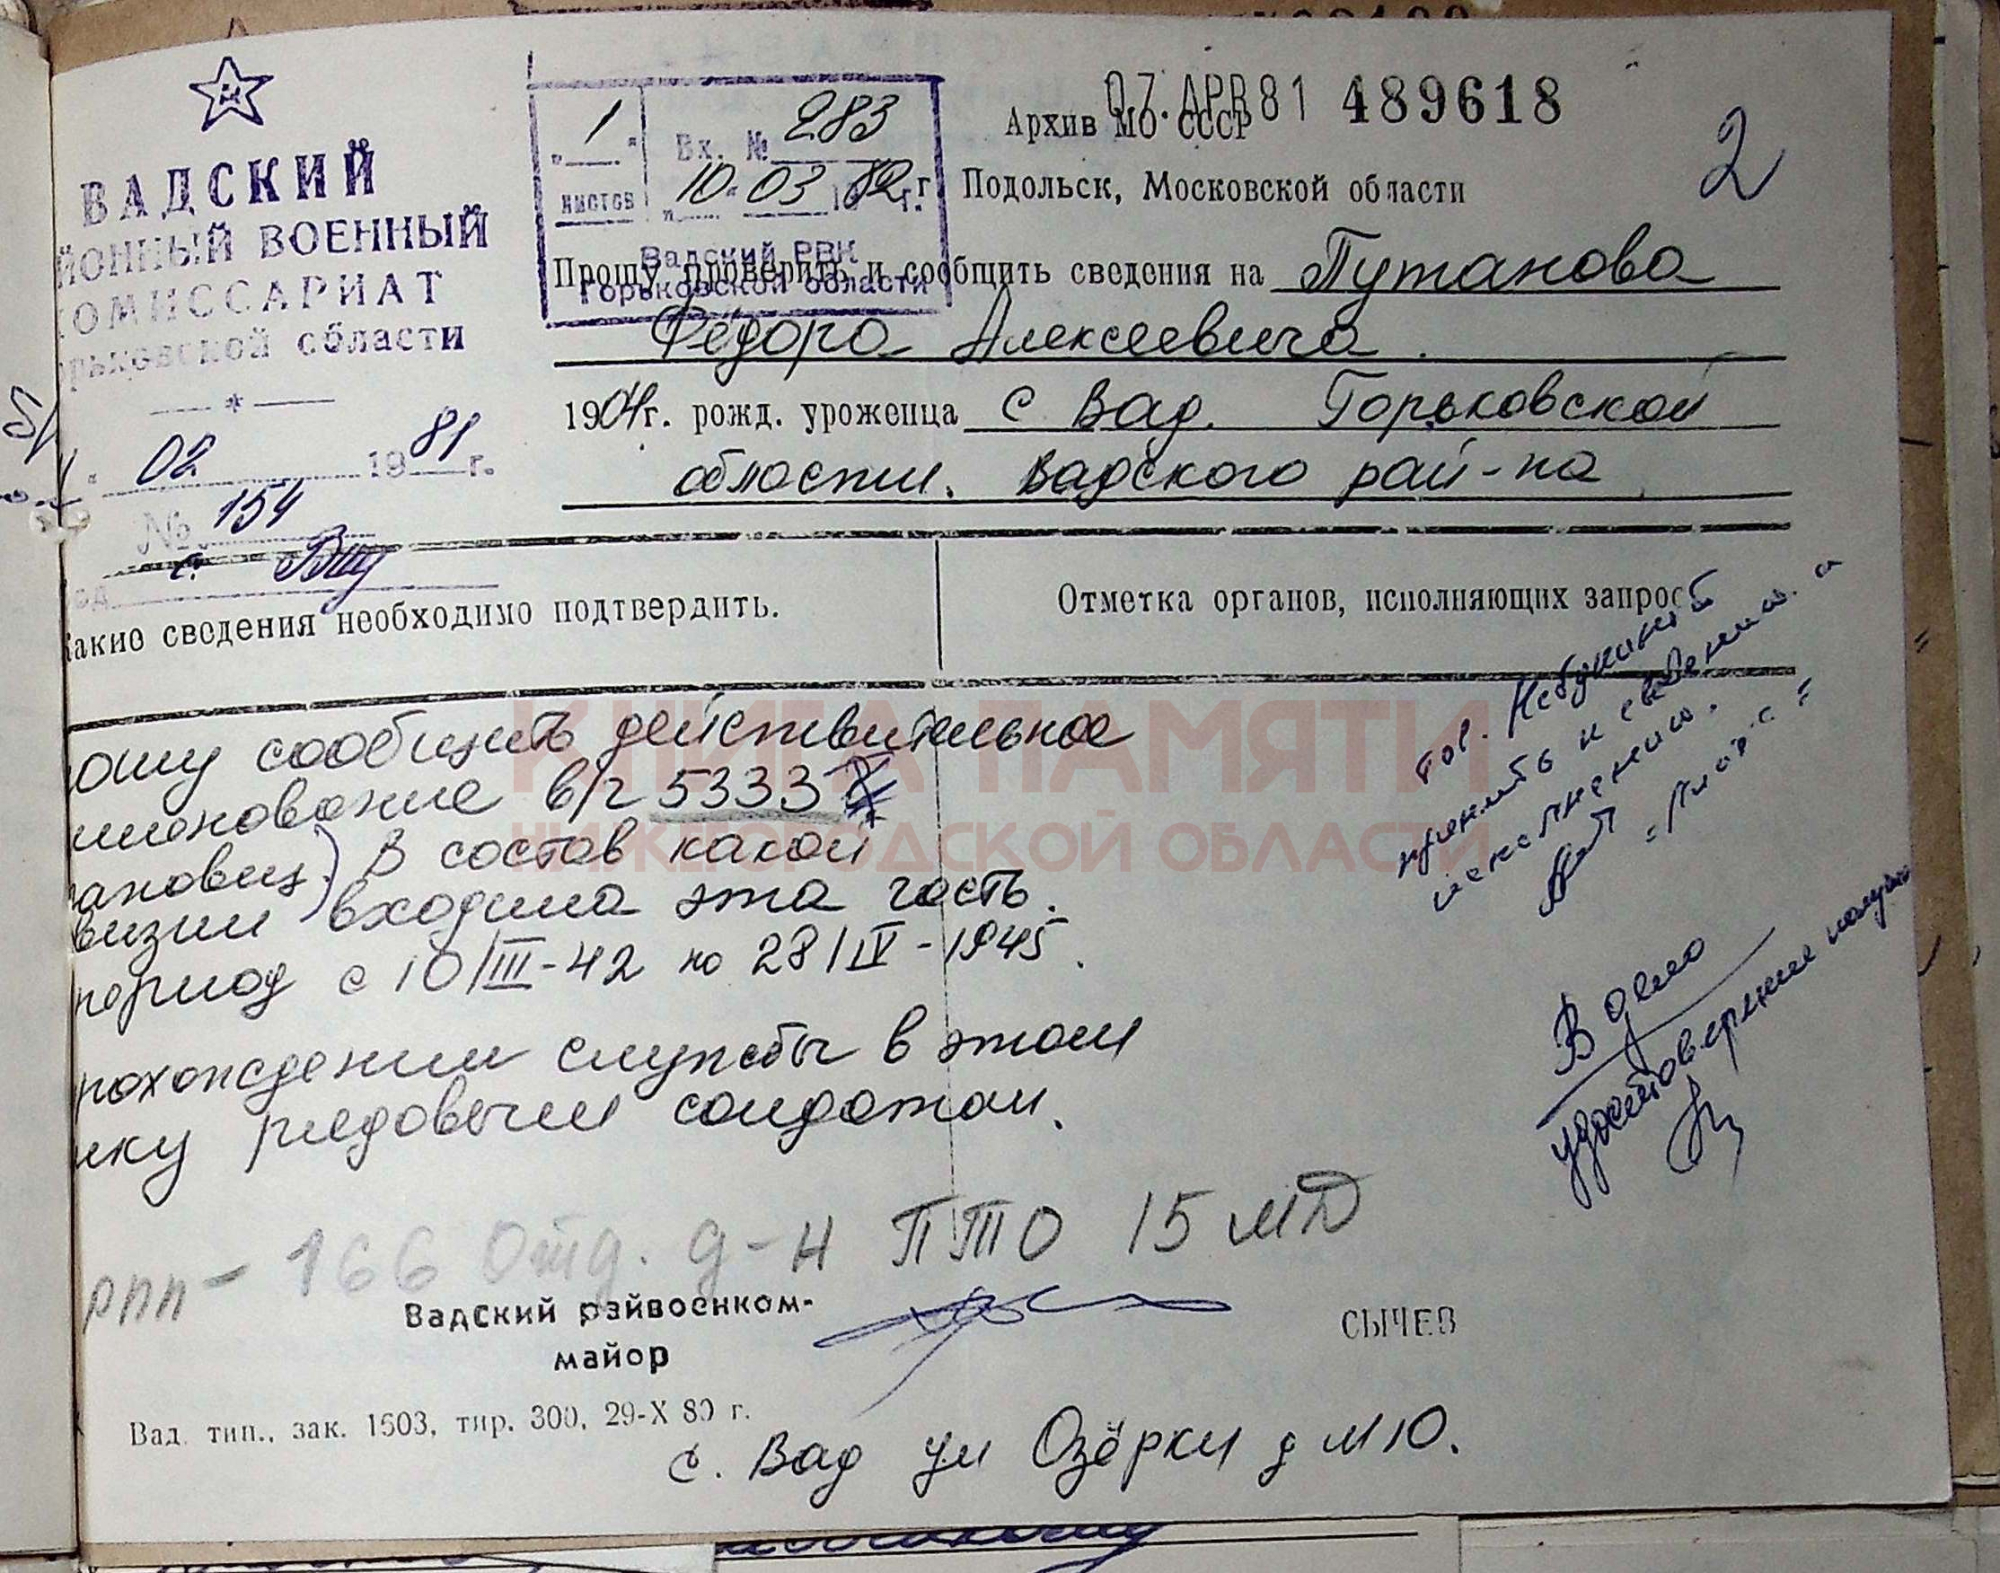 ВАДСКИЙ
ЙОННЫЙ ВОЕННЫЙ
КОМИССАРИАТ
рьковской области
02 1981 г.
№ 154
07. APR 81 489618
2
1
листов
Вх. № 283
10 03 82 г.
Вадский РВК
Горьковской области
Архив МО СССР
Подольск, Московской области
Прошу проверить и сообщить сведения на Путанова
Фёдора Алексеевича.
1904г. рожд. уроженца с Вад. Горьковской
области. Вадского рай-на
Какие сведения необходимо подтвердить.
Отметка органов, исполняющих запрос
ошу сообщить действительное
именование в/ч 5333
ановиц.) В состав какой
визии входила эта часть.
период с 10/III-42 по 28/IV-1945.
рохождении службы в этом
лку рядовым солдатом.
принять к сведению и
исполнению.
В дело
удостоверение
рпп - 166 отд. д-н ПТО 15 МД
Вадский райвоенком-
майор
СЫЧЕВ
Вад. тип., зак. 1503, тир. 300, 29-X 80 г.
с. Вад ул Озёрки д N 10.
КНИГА ПАМЯТИ
НИЖЕГОРОДСКОЙ ОБЛАСТИ